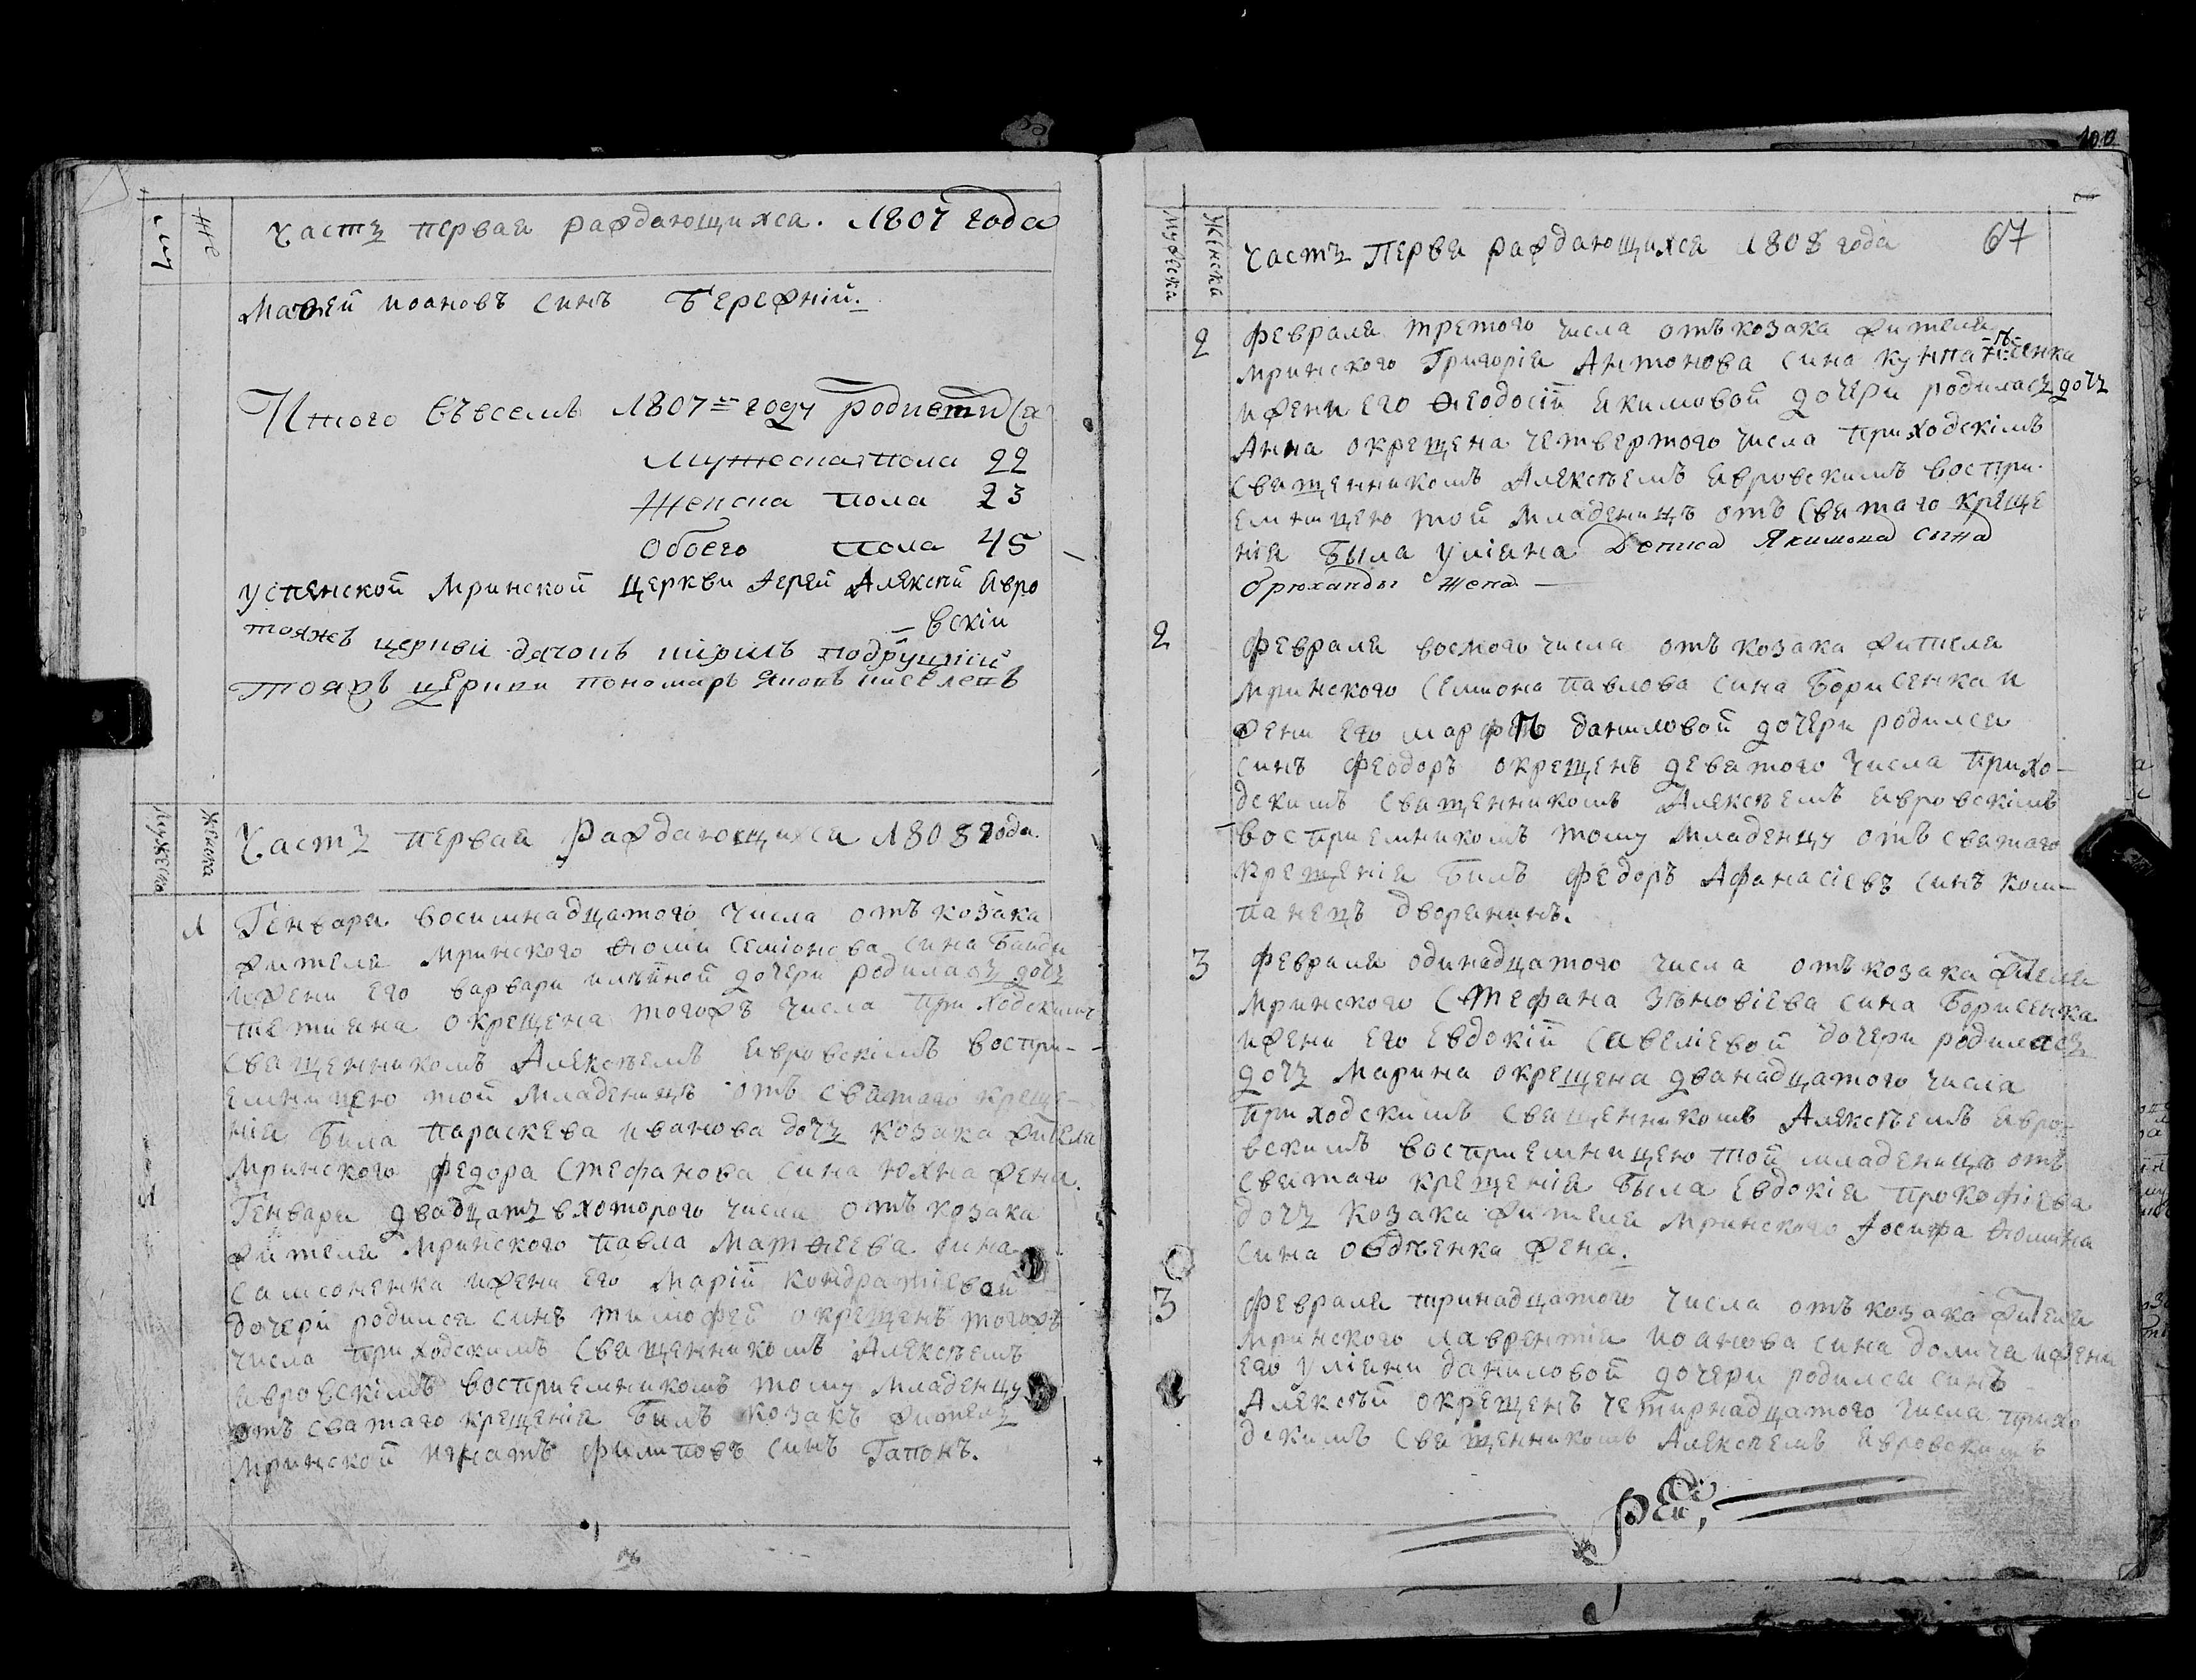 му
же
Часть первая раждающихся. 1807 года
Матѳей иоановъ синъ Бережній.
Итого въвсемъ 1807 = году родиетися
Мужеска пола 22
Женска пола 23
Обоего пола 45
Успенской Мринской церкви Іерей Алексѣй Явро
вскій
тояжъ церкви дячокъ
тояжъ церкви пономарь
Мужеска
Женска
Часть первая Раждающихся 1808 года.
1 Генваря восимнадцатого числа отъ козака
жителя Мринского Ѳоми Семіонова сина Банди
ижени его варвари илѣиной дочери родилась дочь
окрещена тогожъ числа приходскимъ
Священникомъ Алексѣемъ Явровскімъ воспри-
емницею той Младеницѣ отъ святаго креще-
нія била Параскева иванова дочь козака жителя
Мринского Федора Стефанова сина Юхна жена.
1 Генваря двадцать вхоторого числа отъ козака
жителя Мринского Павла Матѳеева сина
Самсоненка ижени его Маріи кондратіевой
дочери родился синъ тимофей окрещенъ тогожъ
числа приходскимъ Священникомъ Алексѣемъ
Явровскімъ восприемникомъ тому Младенцу
отъ святаго крещенія билъ козакъ житель
Мринской игнатъ филиповъ синъ Гапонъ.
100
Мужеска
Женска
Часть Перва раждающихся 1808 года 67
2 Февраля третого числа отъ козака жителя
Мринского Григорія Антонова сина
ижени его Ѳеодосіи Якимовой дочери родилась дочь
Анна окрещена четвертого числа приходскімъ
Священникомъ Алексѣемъ Явровскимъ воспри-
емницею той Младеницѣ отъ Святаго креще
нія была Уліяна Якимова сына
Брюханды жена —
2 Февраля восмого числа отъ козака жителя
Мринского Семиона павлова сина Борисенка и
жени его марфѣ даниловой дочери родился
синъ Феодоръ окрещенъ девятого числа прихо-
дскимъ священникомъ Алексѣемъ Явровскімъ
восприемникомъ тому Младенцу отъ святаго
крещенія билъ Федоръ Афанасіевъ синъ ком-
панецъ дворянинъ.
3 Февраля одинадцатого числа отъ козака жителя
Мринского Стефана Зѣновіева сина Борисенка
ижени его Евдокіи Савеліевой дочери родилась
дочь Марина окрещена дванадцатого числа
приходскимъ священникомъ Алексѣемъ Явро-
вскимъ восприемницею той младеницѣ отъ
святаго крещенія была Евдокія прокофіева
дочь козака жителя Мринского Іосифа Ѳомина
сина жена.
3 Февраля тринадцатого числа отъ козака жителя
Мринского лаврентія иоанова сина долича ижени
его Уліяни даниловой дочери родился синъ
Алексѣй окрещенъ четирнадцатого числа прихо
дскимъ священникомъ Алексѣемъ Явровскимъ